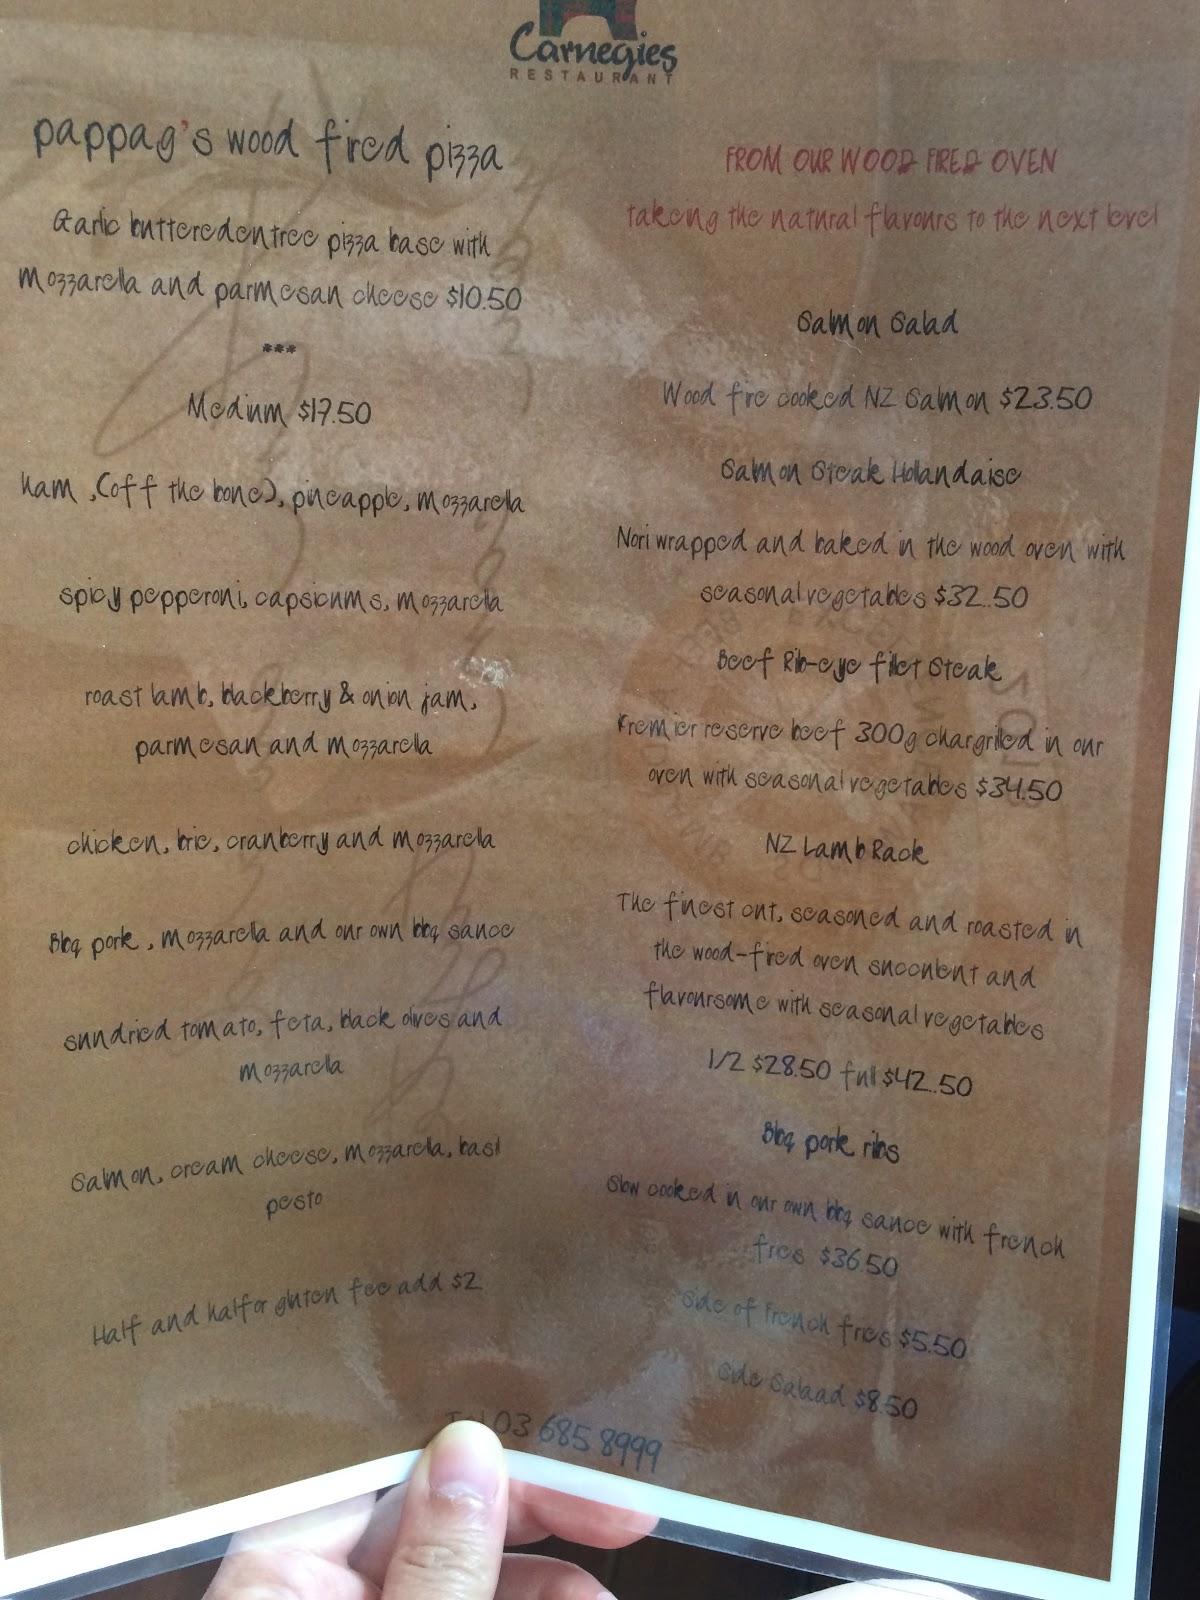 Carnegies
RESTAURANT
pappag's wood fired pizza
Garlic butteredentree pizza base with
mozzarella and parmesan cheese $10.50
***
Medium $17.50
ham ,(off the bone), pineapple, mozzarella
spicy pepperoni, capsicums, mozzarella
roast lamb, blackberry & onion jam,
parmesan and mozzarella
chicken, brie, cranberry and mozzarella
Bbq pork , mozzarella and our own bbq sauce
sundried tomato, feta, black olives and
mozzarella
Salmon, cream cheese, mozzarella, basil
pesto
Half and halfor gluten fee add $2
FROM OUR WOOD FIRED OVEN
takeing the natural flavours to the next level
Salmon Salad
Wood fire cooked NZ Salmon $23.50
Salmon Steak Hollandaise
Nori wrapped and baked in the wood oven with
seasonal vegetables $32.50
Beef Rib-eye fillet Steak
Premier reserve beef 300g chargrilled in our
oven with seasonal vegetables $34.50
NZ Lamb Rack
The finest cut, seasoned and roasted in
the wood-fired oven succulent and
flavoursome with seasonal vegetables
1/2 $28.50 full $42.50
Bbq pork ribs
Slow cooked in our own bbq sauce with french
fries $36.50
Side of French fries $5.50
Side Salaad $8.50
03 685 8999